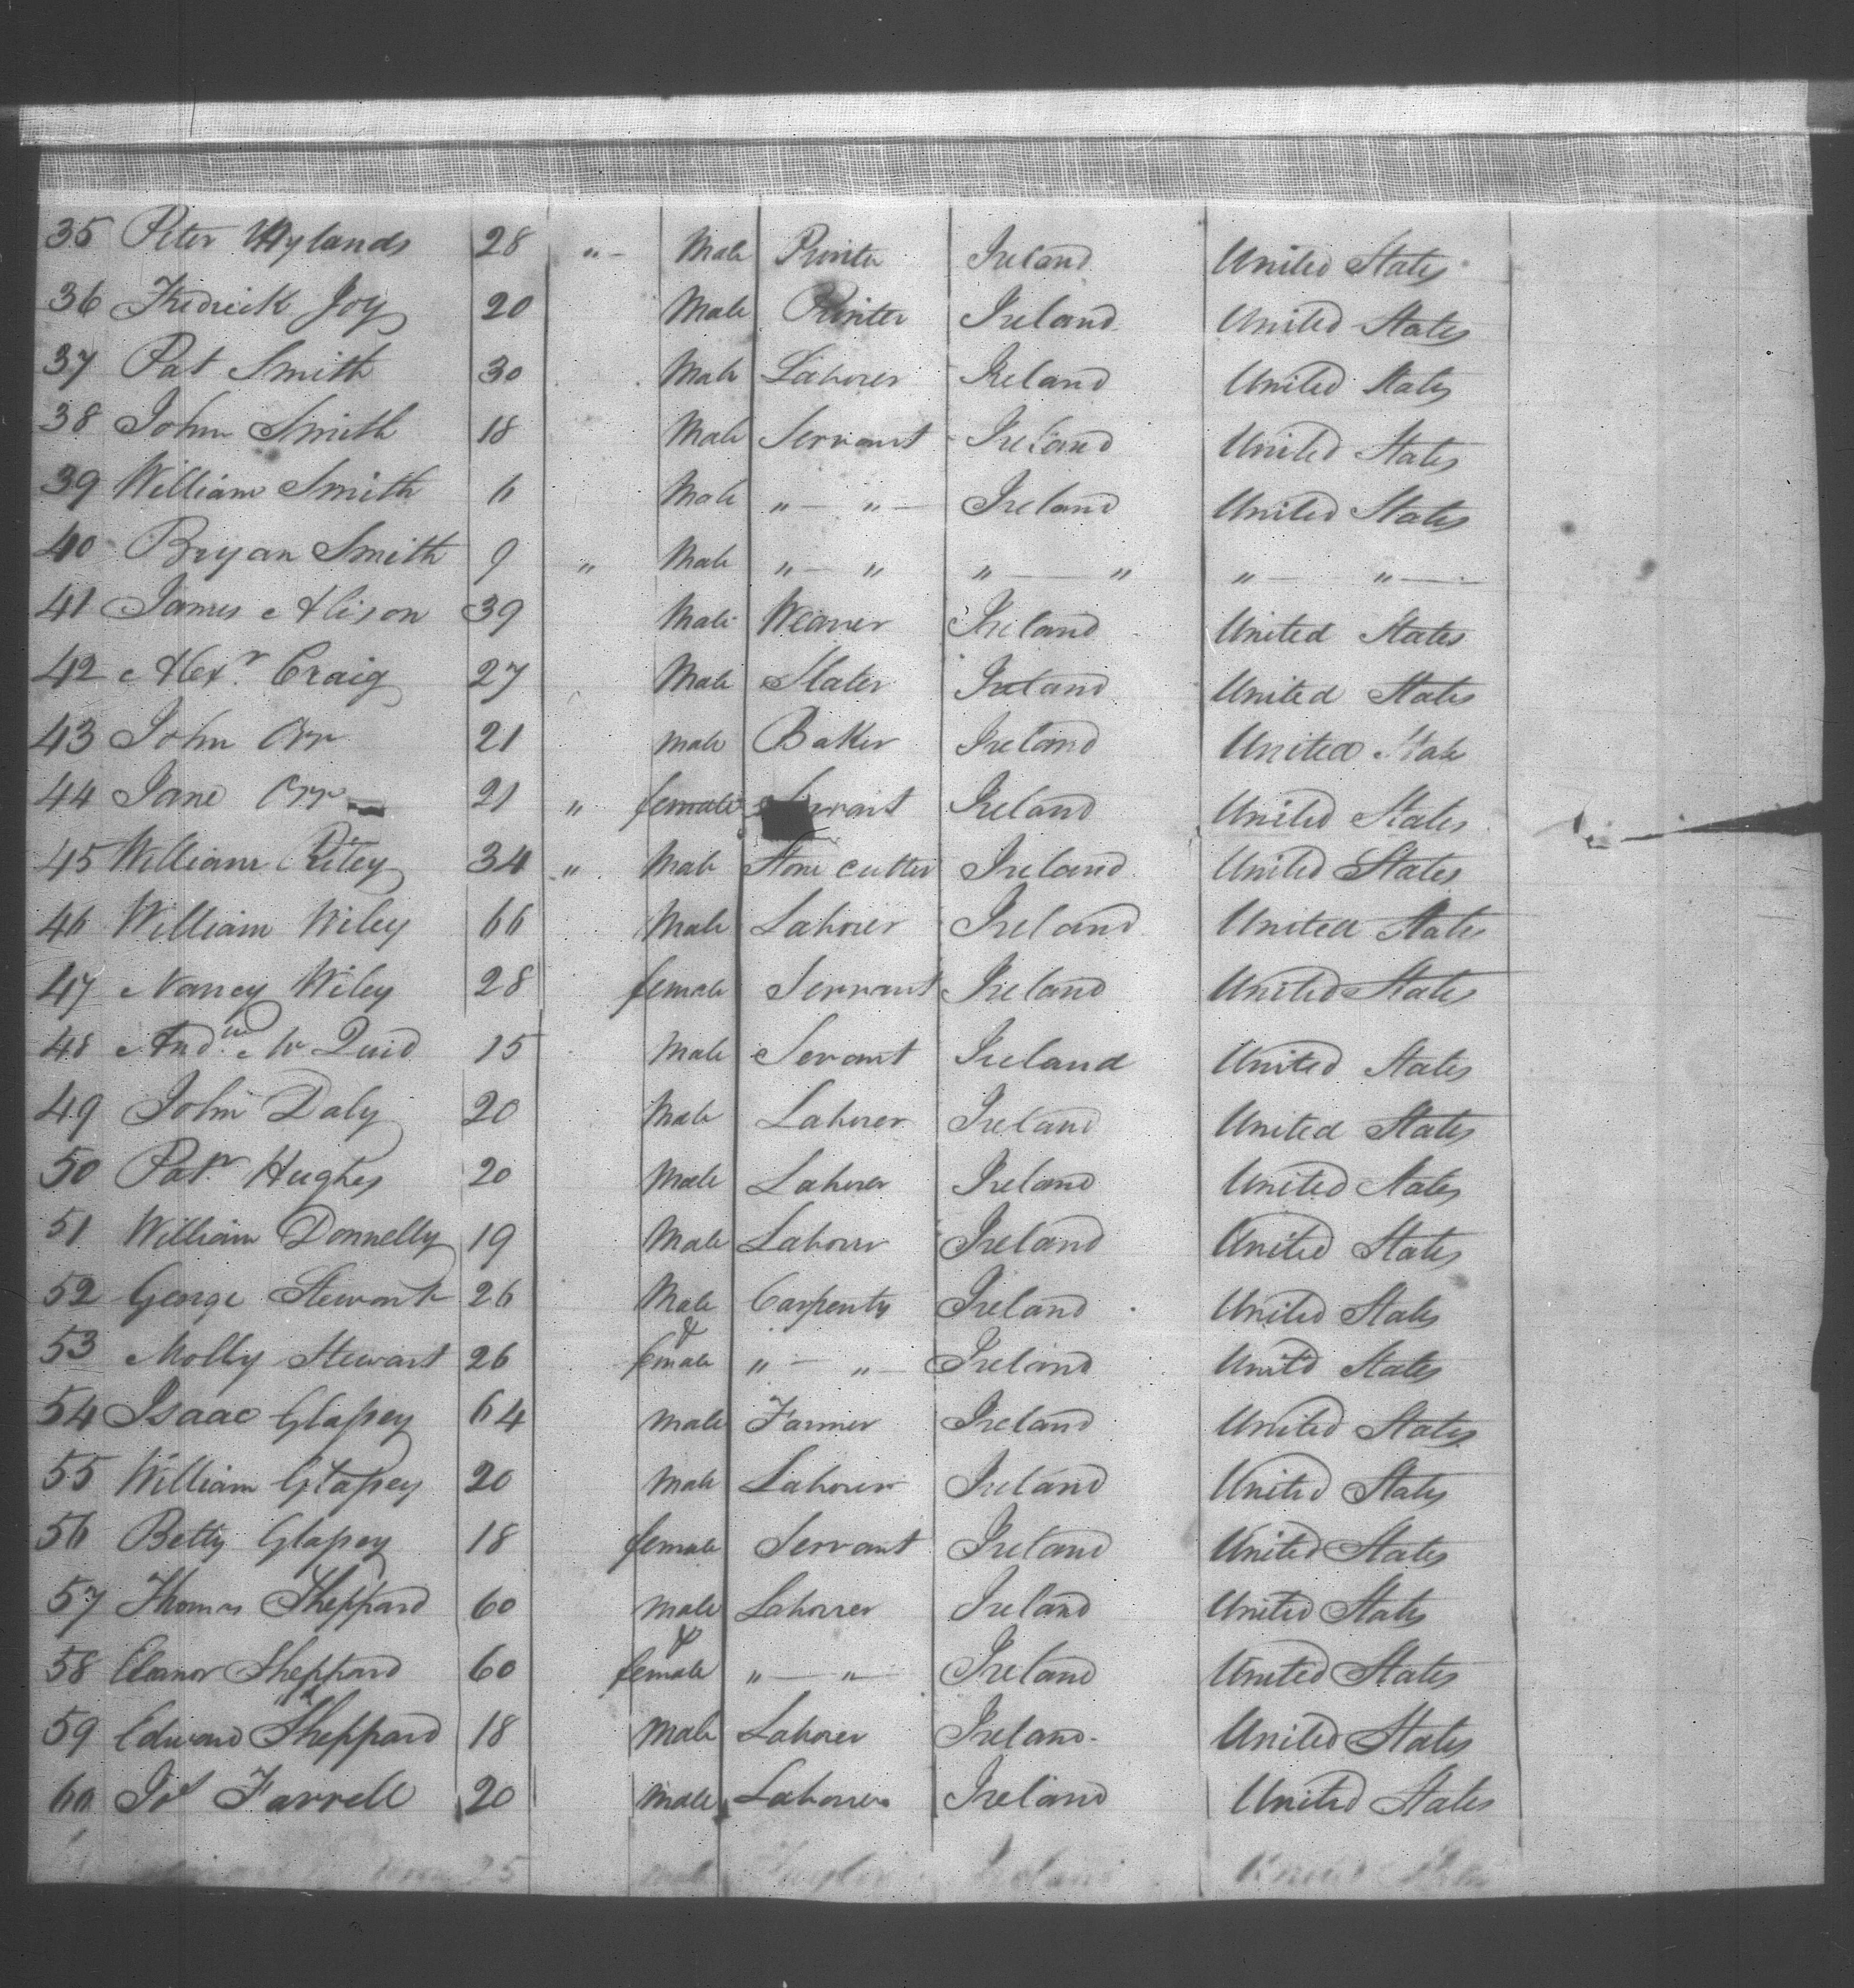 35 Peter Wylands 28 " - Male Printer Ireland United States
36 Fredrick Joy 20 Male Printer Ireland United States
37 Pat Smith 30 Male Laborer Ireland United States
38 John Smith 18 Male Servant Ireland United States
39 William Smith 6 Male " — " — Ireland United States
40 Bryan Smith 9 " Male " — " " — " " — " —
41 James Alison 39 Male Weaver Ireland United States
42 Alexr. Craig 27 Male Slater Ireland United States
43 John Orr 21 male Baker Ireland United State
44 Jane Orr 21 " female Ireland United States
45 William Riley 34 " Male Stone cutter Ireland United States
46 William Wiley 66 Male Laborer Ireland United States
47 Nancy Wiley 28 female Servant Ireland United States
48 Andw. Mc Quid 15 Male Servant Ireland United States
49 John Daly 20 Male Laborer Ireland United States
50 Patr. Hughes 20 Male Laborer Ireland United States
51 William Donnelly 19 Male Laborer Ireland United States
52 George Stewart 26 Male Carpenter Ireland United States
53 Molly Stewart 26 & female " — " — Ireland United States
54 Isaac Glapsey 64 male Farmer Ireland United States
55 William Glapsey 20 Male Laborer Ireland United States
56 Betty Glapsey 18 female Servant Ireland United States
57 Thomas Sheppard 60 Male Laborer Ireland United States
58 Eleanor Sheppard 60 & female " — " — Ireland United States
59 Edward Sheppard 18 Male Laborer Ireland United States
60 Farrell 20 Male Laborer Ireland United States
25 Ireland